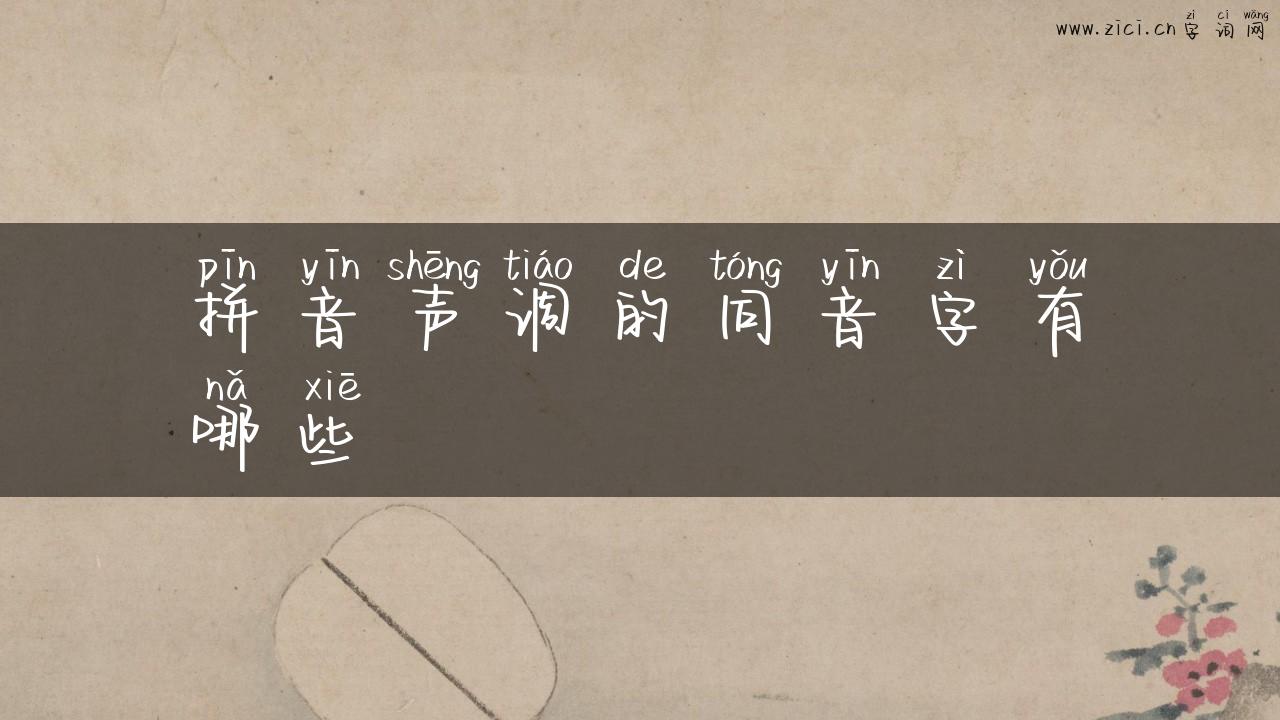 zì cí wǎng
www.zici.cn字词网
pīn yīn shēng tiáo de tóng yīn zì yǒu
拼音声调的同音字有
nǎ xiē
哪些